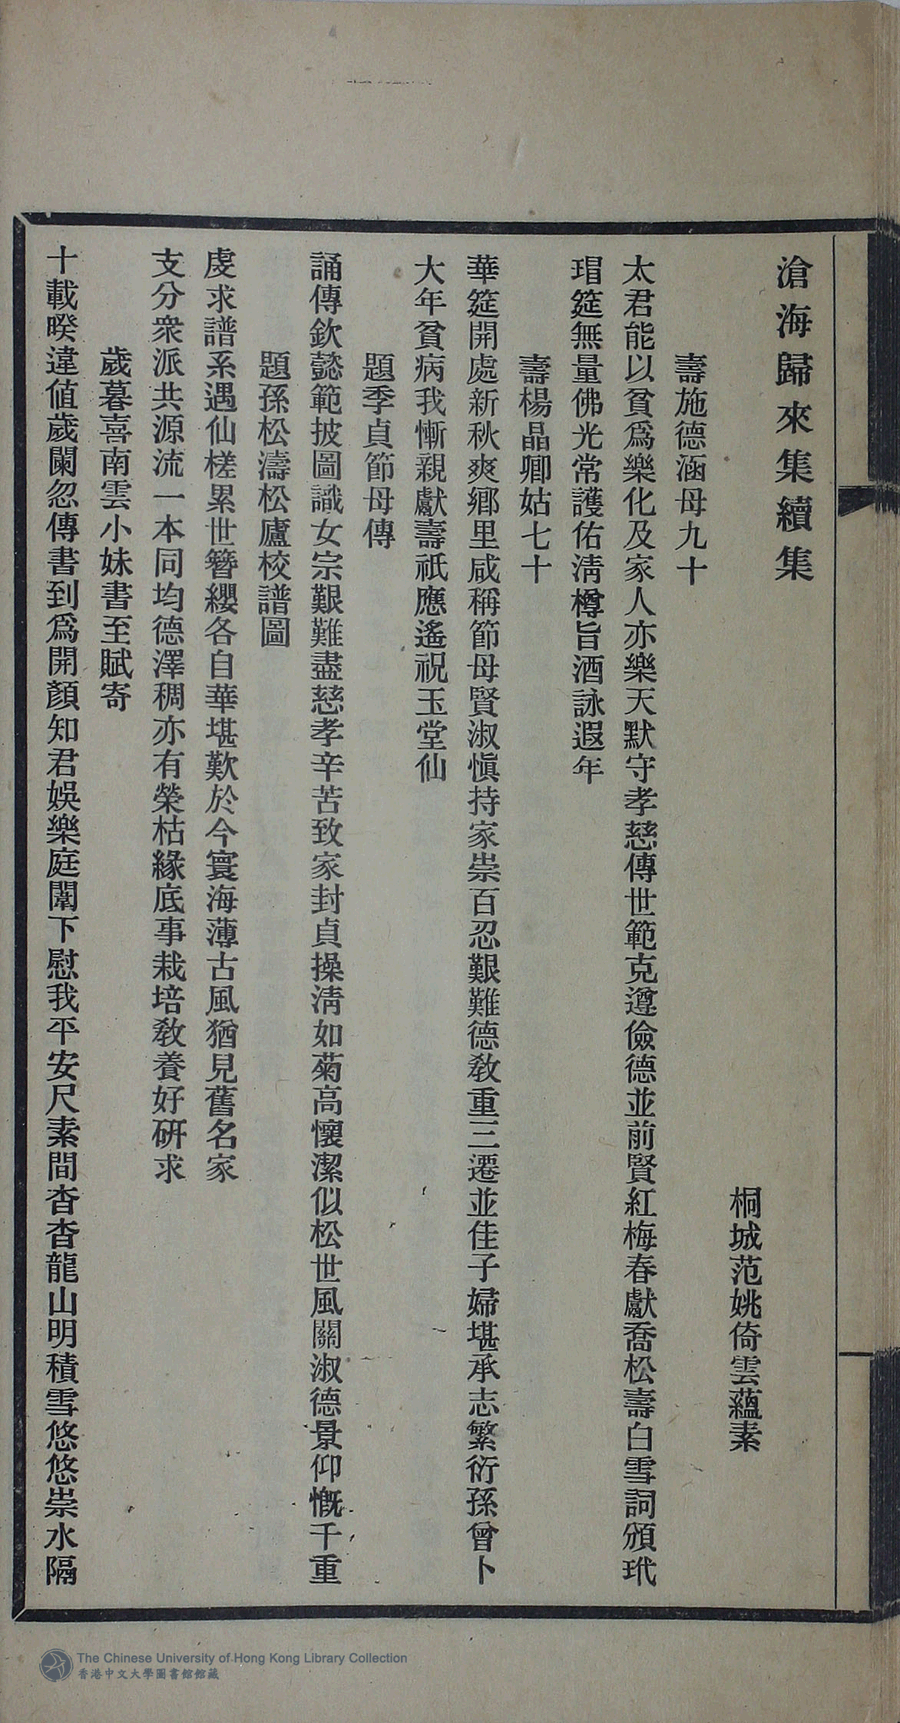 滄海歸來集續集
桐城范姚倚雲蘊素
壽施德涵母九十
太君能以貧爲樂化及家人亦樂天默守孝慈傳世範克遵儉德並前賢紅梅春獻喬松壽白雪詞頒玳
瑁筵無量佛光常護佑淸樽旨酒詠遐年
壽楊晶卿姑七十
華筵開處新秋爽鄉里咸稱節母賢淑愼持家崇百忍艱難德敎重三遷並佳子婦堪承志繁衍孫曾卜
大年貧病我慚親獻壽祇應遙祝玉堂仙
題季貞節母傳
誦傳欽懿範披圖識女宗艱難盡慈孝辛苦致家封貞操淸如菊高懷潔似松世風關淑德景仰慨千重
題孫松濤松廬校譜圖
虔求譜系遇仙槎累世簪纓各自華堪歎於今寰海薄古風猶見舊名家
支分衆派共源流一本同均德澤稠亦有榮枯緣底事栽培敎養好硏求
歲暮喜南雲小妹書至賦寄
十載暌違值歲闌忽傳書到爲開顏知君娛樂庭闈下慰我平安尺素間杳杳龍山明積雪悠悠崇水隔
The Chinese University of Hong Kong Library Collection
香港中文大學圖書館館藏